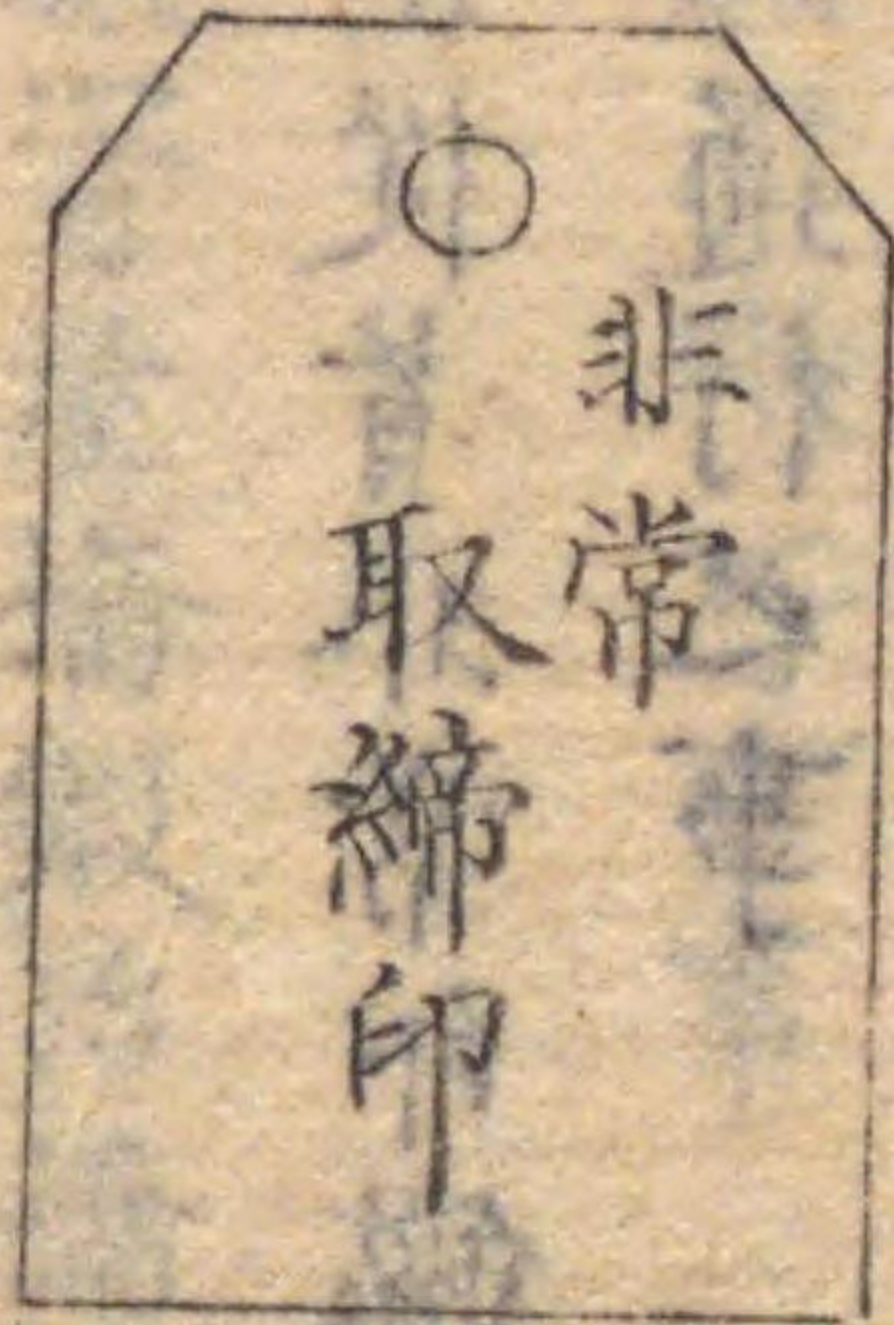 非常
取締印